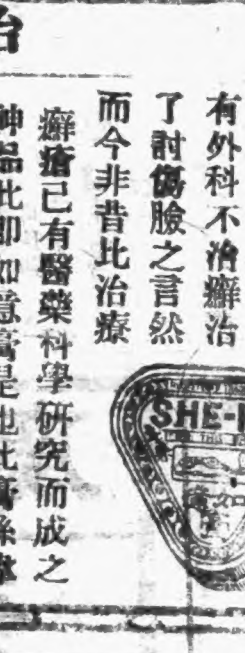 治
有外科不治癬治
了討傷臉之言然
而今非昔比治療
癬瘡已有醫藥科學研究而成之
神品此即如意膏是也此膏係
SHE-
如
意